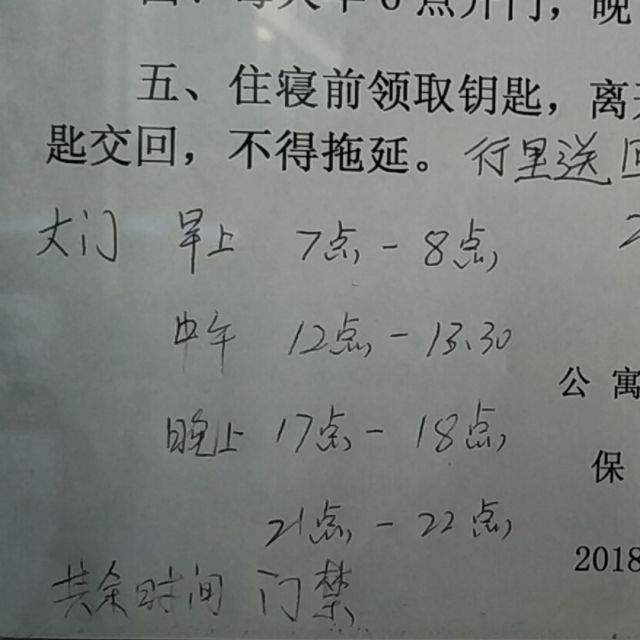 四、每天早6点开门，晚
五、住寝前领取钥匙，离开
匙交回，不得拖延。行里送回
大门 早上 7点-8点
中午 12点-13.30
公寓
晚上 17点-18点
保
21点-22点
2018
共余时间 门禁